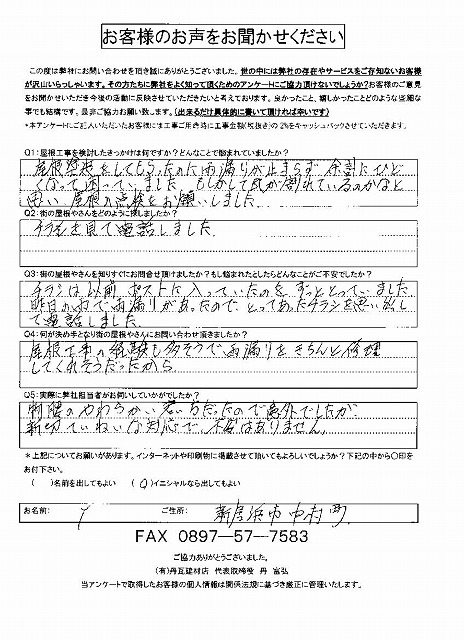 お客様のお声をお聞かせください
この度は弊社にお問い合わせを頂き誠にありがとうございます。世の中には弊社の存在やサービスをご存知ないお客様
が沢山いらっしゃいます。その方たちに弊社をよく知って頂くためのアンケートにご協力頂けないでしょうか?お客様のご意見
をお聞かせいただき今後の活動に反映させていただきたいと考えております。良かったこと、嬉しかったことどのような些細な
事でも結構です。是非ご協力お願い致します。(出来るだけ具体的に書いて頂ければ幸いです)
*本アンケートにご記入いただいたお客様には工事ご用命時に工事金額(税抜き)の2%をキャッシュバックさせていただきます。
Q1:屋根工事を検討したきっかけは何ですか?どんなことで悩まれていましたか?
屋根塗装をしてもらったのに雨漏りが止まらず、余計にひど
くなって困っていました。もしかして瓦が割れているのかなと
思い、屋根の点検をお願いしました。
Q2:街の屋根やさんをどのように探しましたか?
チラシを見て電話しました。
Q3:街の屋根やさんを知りすぐにお問合せ頂けましたか?もし悩まれたとしたらどんなことがご不安でしたか?
チラシは以前ポストに入っていたのをずっととっていました
昨日の雨で雨漏りがあったので、とってあったチラシを思い出し
て電話しました。
Q4:何が決め手となり街の屋根やさんにお問い合わせ頂きましたか?
屋根工事の経験も多そうで、雨漏りをきちんと修理
してくれそうだったから。
Q5:実際に弊社担当者がお伺いしていかがでしたか?
制服のやわらかい若い方だったので意外でしたが、
親切ていねいな対応で、不安はありません。
*上記についてお願いがあります。インターネットや印刷物に掲載させて頂いてもよろしいでしょうか?下記の中から〇印を
お付下さい。
( )名前を出してもよい (〇)イニシャルなら出してもよい
お名前: Y ご住所: 新居浜市中村町
FAX 0897-57-7583
ご協力ありがとうございました。
(有)丹瓦建材店 代表取締役 丹 富弘
当アンケートで取得したお客様の個人情報は関係法規に基づき厳正に管理いたします。